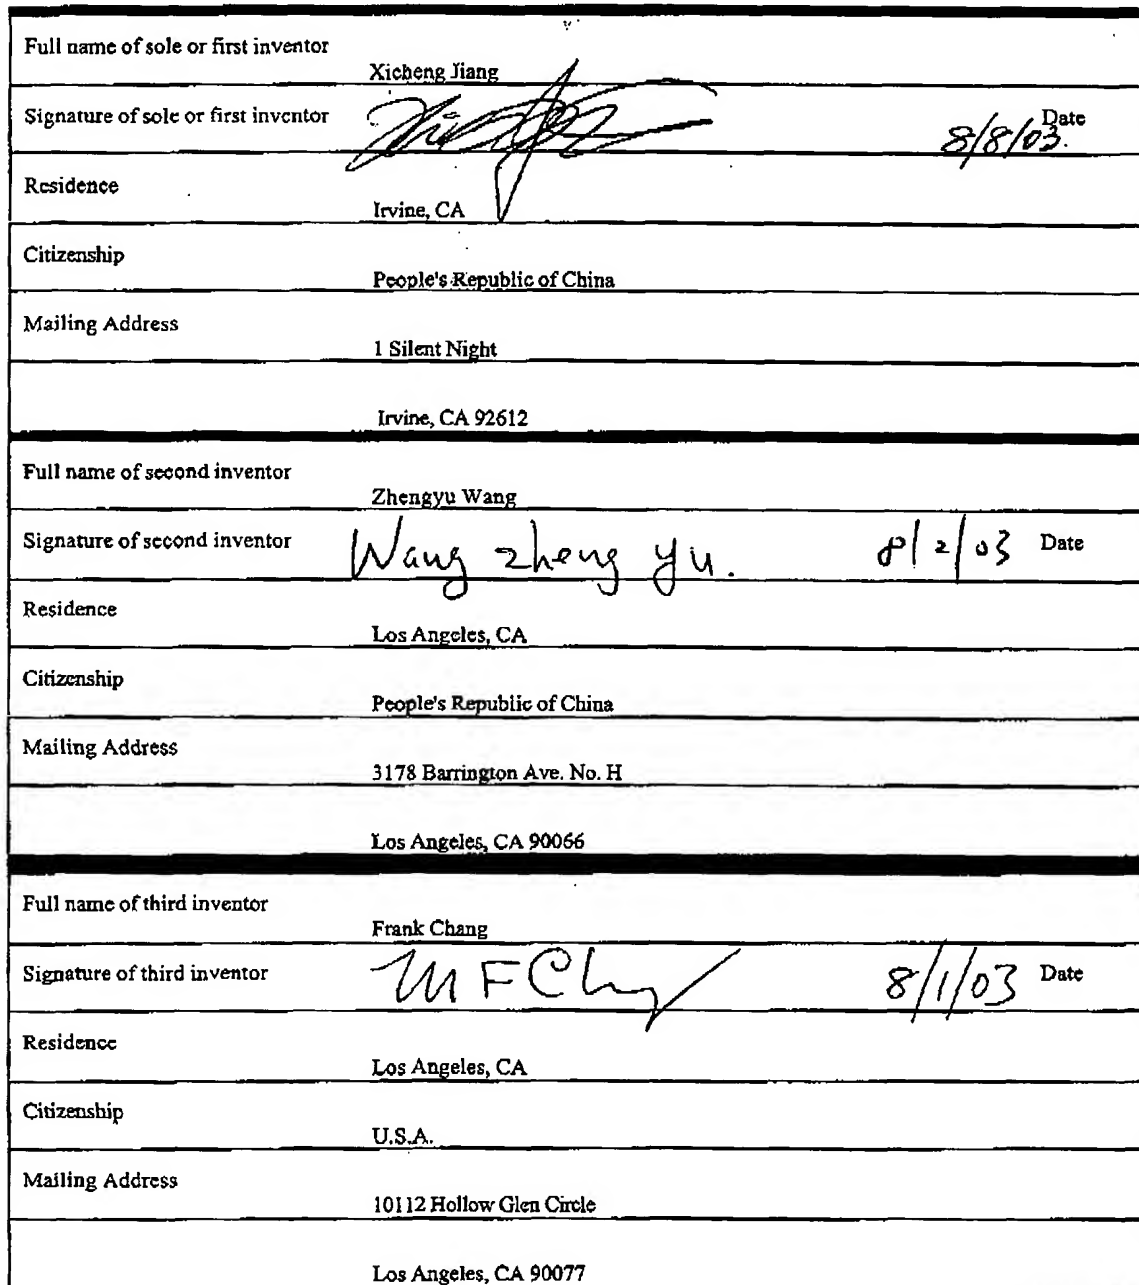 Full name of sole or first inventor
Xicheng Jiang
Signature of sole or first inventor 8/8/03. Date
Residence
Irvine, CA
Citizenship
People's Republic of China
Mailing Address
1 Silent Night
Irvine, CA 92612
Full name of second inventor
Zhengyu Wang
Signature of second inventor Wang zheng yu. 8/2/03 Date
Residence
Los Angeles, CA
Citizenship
People's Republic of China
Mailing Address
3178 Barrington Ave. No. H
Los Angeles, CA 90066
Full name of third inventor
Frank Chang
Signature of third inventor MFChg 8/1/03 Date
Residence
Los Angeles, CA
Citizenship
U.S.A.
Mailing Address
10112 Hollow Glen Circle
Los Angeles, CA 90077